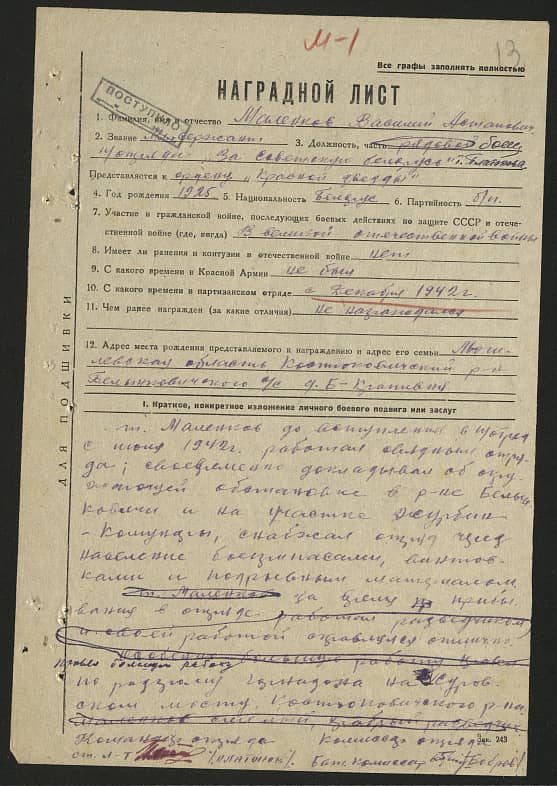 М-1
13
Все графы заполнять полностью
ПОСТУПИЛО
НАГРАДНОЙ ЛИСТ
1. Фамилия, имя и отчество Маленков Василий
2. Звание 3. Должность, часть рядовой боец
"За Советскую Беларусь"
Представляется к ордену "Красной звезды"
4. Год рождения 1925 5. Национальность Белорус 6. Партийность б/п.
7. Участие в гражданской войне, последующих боевых действиях по защите СССР и отече-
ственной войне (где, когда) В великой отечественной войны
8. Имеет ли ранения и контузии в отечественной войне нет
9. С какого времени в Красной Армии не был
10. С какого времени в партизанском отряде с декабря 1942 г.
11. Чем ранее награжден (за какие отличия) не награждался
12. Адрес места рождения представляемого к награждению и адрес его семьи Моги-
левская область Костюковичский р-н
Белынковичского с/с д. Б-Крапивня
I. Краткое, конкретное изложение личного боевого подвига или заслуг
т. Маленков до вступления в отряд
с июля 1942 г. работал связным отря-
да; своевременно докладывал об окру-
жающей обстановке в р-не Белын-
ковичи и на участке Журбин
- Коммунары, снабжал отряд через
население боеприпасами, винтов-
ками и подрывным материалом.
т. Маленков за время пребы
вания в отряде работал разведчиком
и своей работой справлялся отлично.
провел большую работу
по разгрому гарнизона на Суров-
ском мосту, Костюковичского р-на.
Командир отряда Комиссар отряда
ст. л-т Бат. Комиссар (Бобров)
Зак. 243
ДЛЯ ПОДШИВКИ